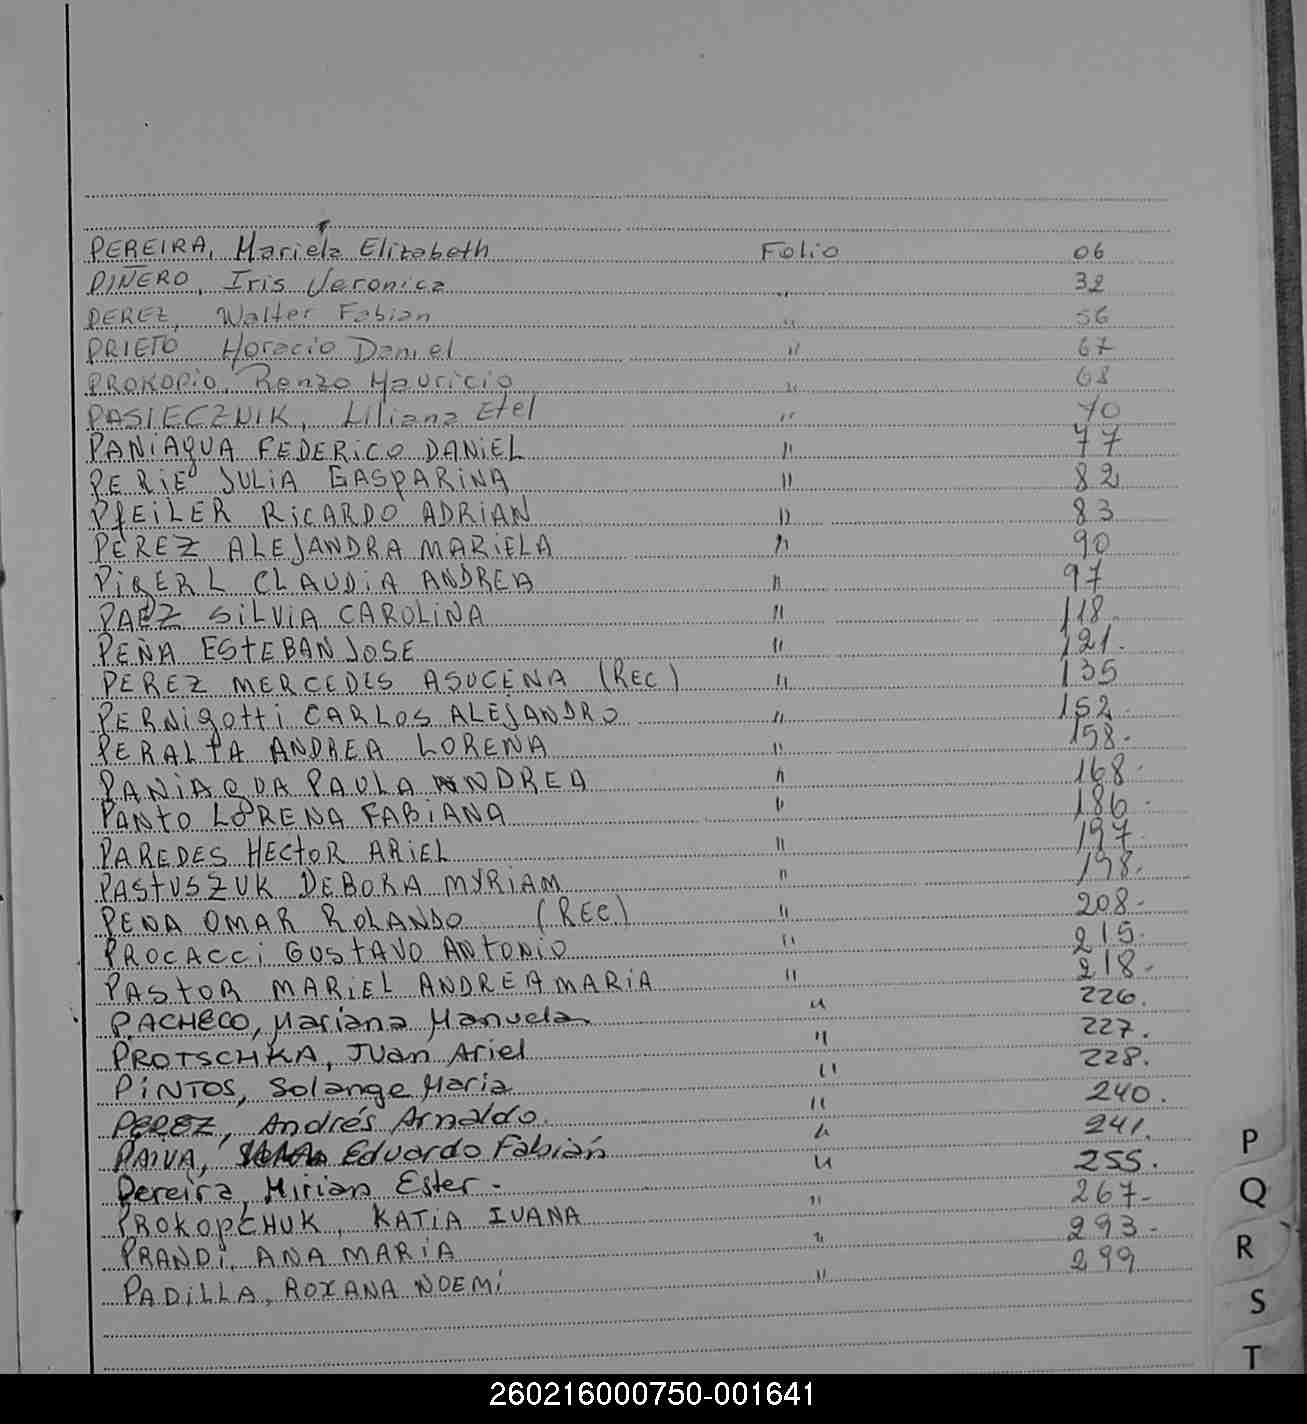 PEREIRA, Mariela Elizabeth Folio 06
PIÑERO, Iris Veronica " 32
PEREZ, Walter Fabian " 56
PRIETO Horacio Daniel " 67
PROKOPIO, Renzo Mauricio " 68
PASIECZNIK, Liliana Etel " 70
PANIAGUA FEDERICO DANIEL " 77
PERIE JULIA GASPARINA " 82
PfEILER RICARDO ADRIAN " 83
PEREZ ALEJANDRA MARIELA " 90
PIGERL CLAUDIA ANDREA " 97
PAEZ SILVIA CAROLINA " 118.
PEÑA ESTEBAN JOSE " 121.
PEREZ MERCEDES ASUCENA (REC) " 135
PERNIGOTTI CARLOS ALEJANDRO " 152.
PERALTA ANDREA LORENA " 158.
PANIAGUA PAULA ANDREA " 168.
PANTO LORENA FABIANA " 186.
PAREDES HECTOR ARIEL " 197.
PASTUSZUK DEBORA MYRIAM " 198.
PENA OMAR ROLANDO (REC) " 208-
PROCACCI GUSTAVO ANTONIO " 215.
PASTOR MARIEL ANDREA MARIA " 218-
PACHECO, Mariana Manuela " 226.
PROTSCHKA, Juan Ariel " 227.
PINTOS, Solange Maria " 228.
PEREZ, Andrés Arnaldo. " 240.
PAIVA, Eduardo Fabián " 241.
Pereira, Mirian Ester - " 255.
PROKOPCHUK, KATIA IVANA " 267-
PRANDI, ANA MARIA " 293-
PADILLA, ROXANA NOEMÍ " 299
P
Q
R
S
T
260216000750-001641